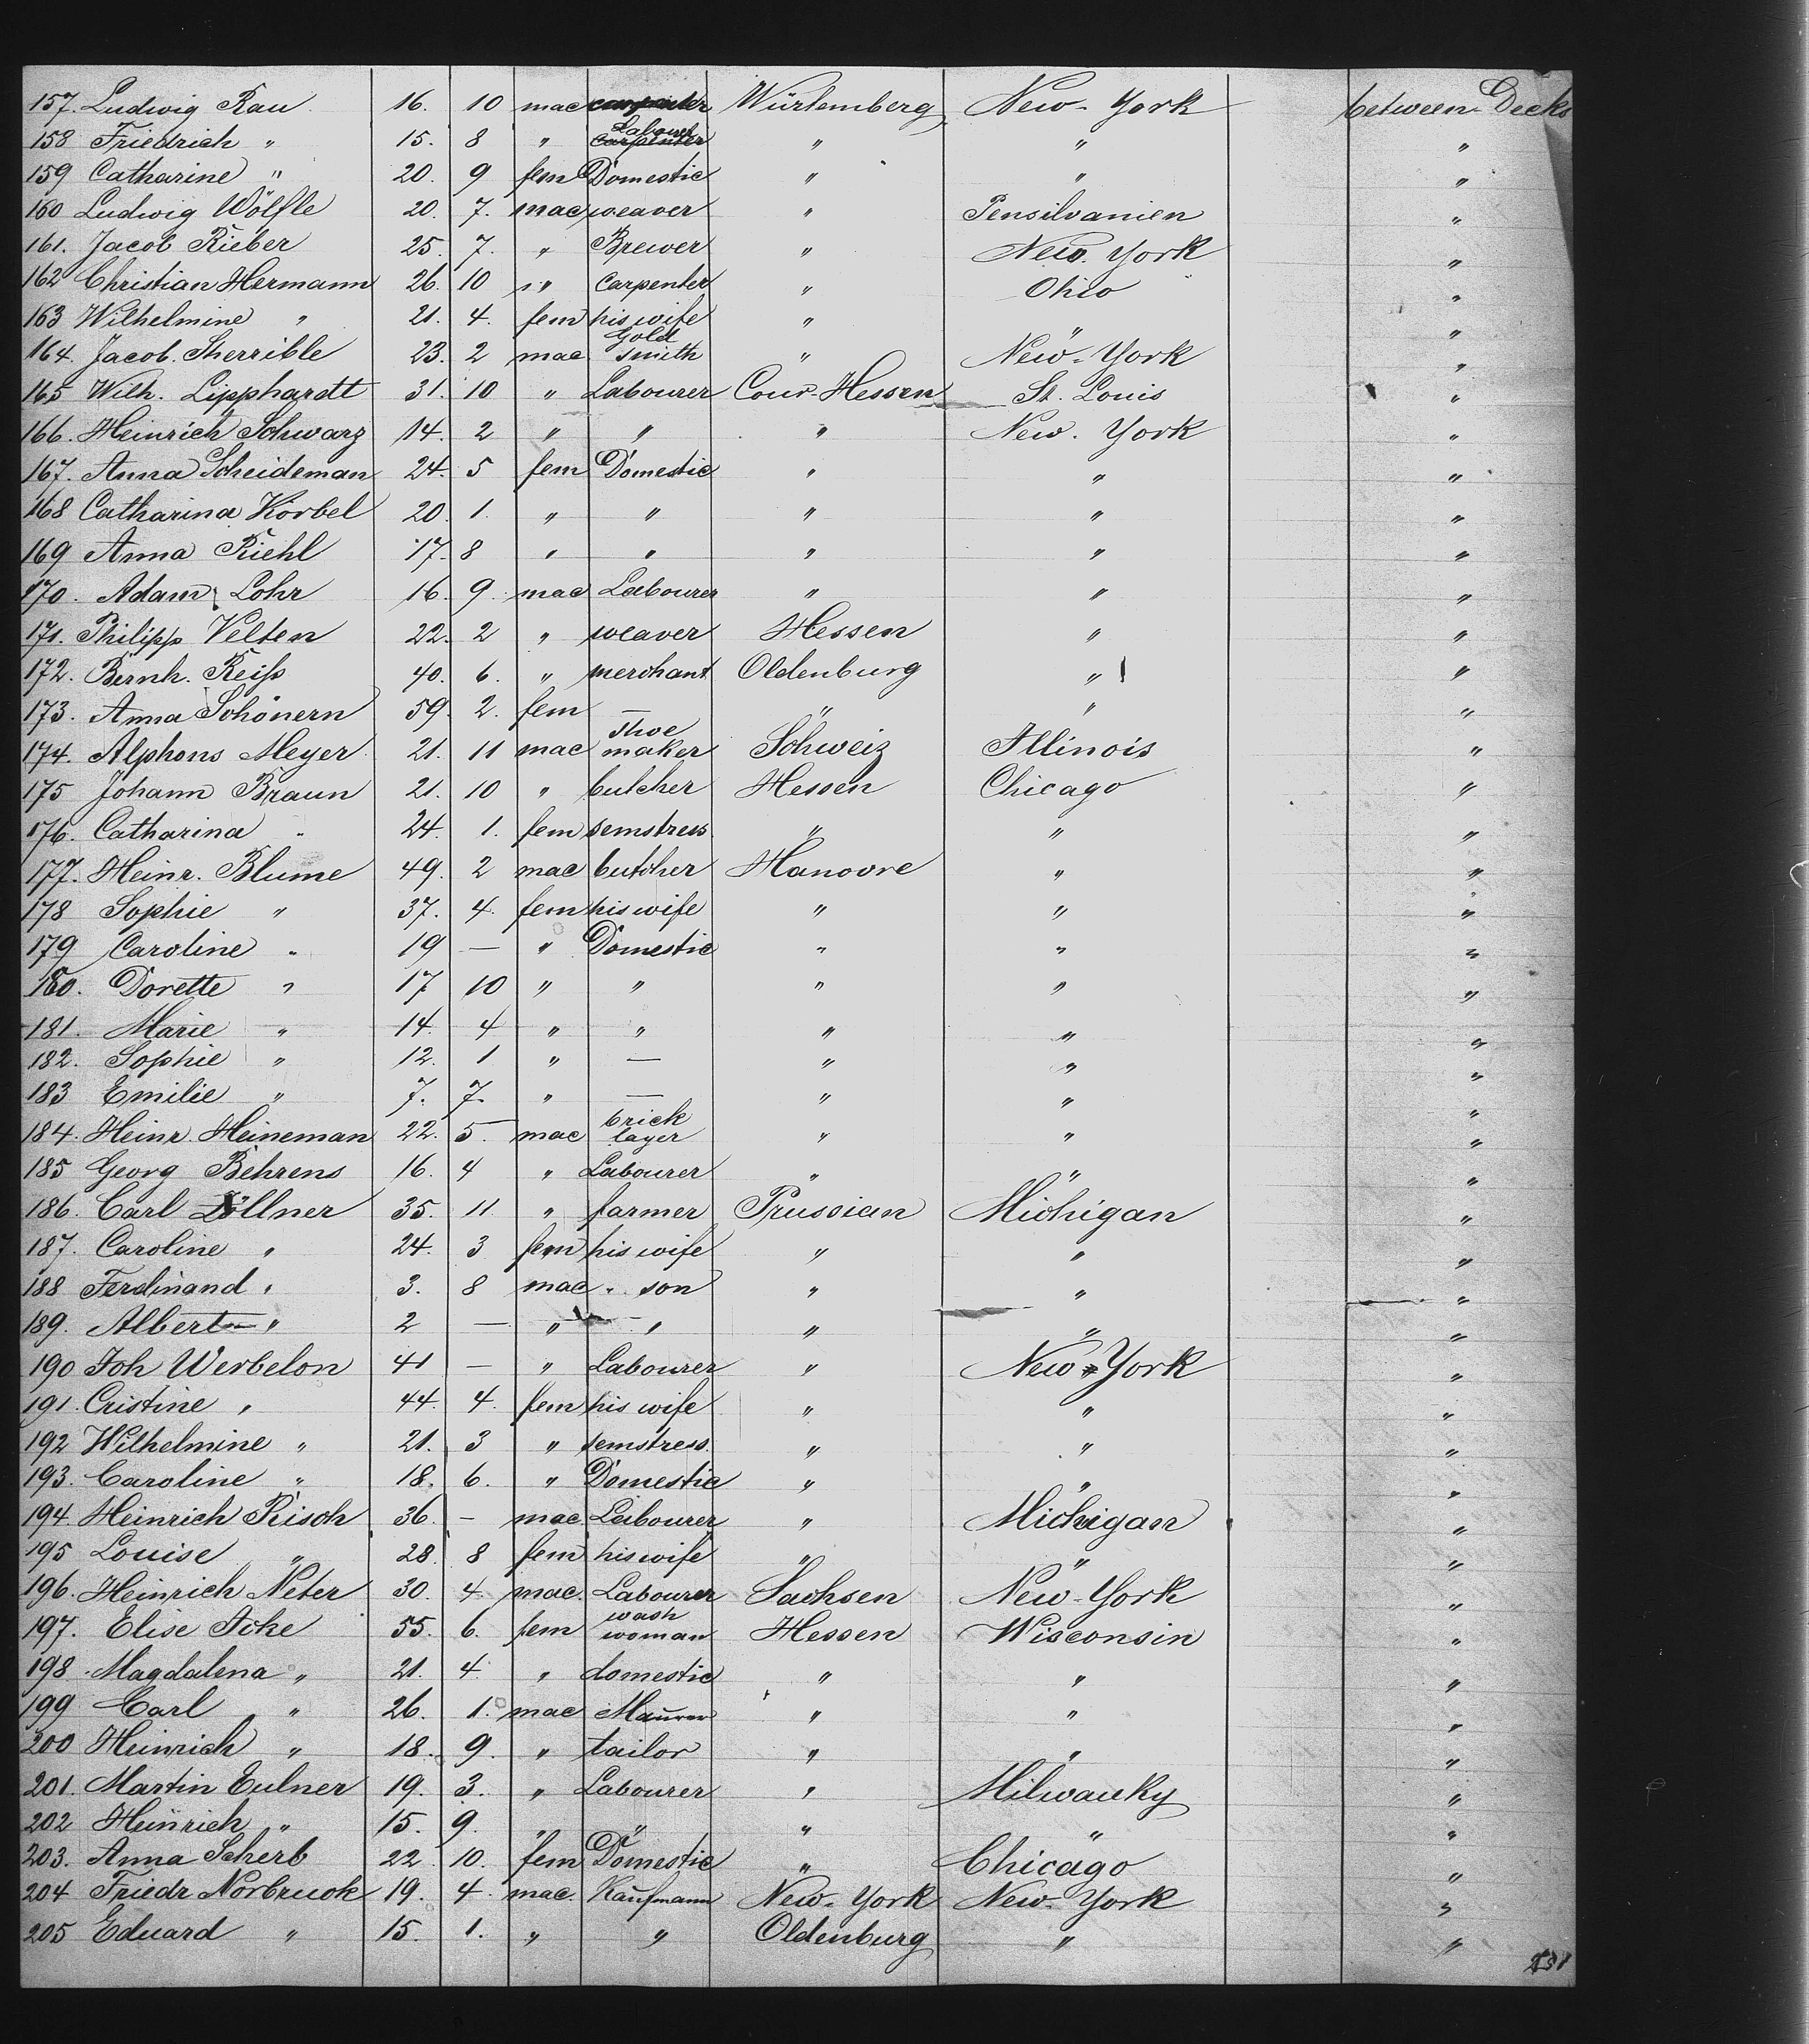 157. Ludwig Rau 16. 10 mac carpenter Würtemberg New-York between-Decks
158 Friedrich " 15. 8 " carpenter Labourer " " "
159 Catharine " 20. 9 fem Domestic " " "
160 Ludwig Wölfle 20. 7. mac weaver " Pensilvanien "
161. Jacob Rieber 25. 7. " Brewer " New-York "
162 Christian Hermann 26. 10 " carpenter " Ohio "
163 Wilhelmine " 21. 4. fem his wife " " "
164. Jacob Sherrible 23. 2 mac Gold smith " New-York "
165 Wilh. Lipphardt 31. 10 " Labourer Cour-Hessen St. Louis "
166. Heinrich Schwarz 14. 2 " " " New. York "
167. Anna Scheideman 24. 5 fem Domestic " " "
168 Catharina Körbel 20. 1. " " " " "
169 Anna Riehl 17. 8 " " " " "
170. Adam Lohr 16. 9. mac Labourer " " "
171. Philipp Velten 22. 2 " weaver Hessen " "
172. Bernh. Reiß 40. 6. " merchant Oldenburg " "
173. Anna Schönern 59. 2. fem — " " "
174. Alphons Meyer 21. 11 mac shoe maker Schweiz Illinois "
175 Johann Braun 21. 10 " butcher Hessen Chicago "
176. Catharina " 24. 1. fem semstress " " "
177. Heinr. Blume 49. 2 mac butcher Hanovre " "
178 Sophie " 37. 4. fem his wife " " "
179 Caroline " 19 — " Domestic " " "
180. Dorette " 17 10 " " " " "
181. Marie " 14. 4 " " " " "
182. Sophie " 12. 1 " — " " "
183 Emilie " 7. 7. " — " " "
184. Heinr. Heineman 22. 5. mac brick layer " " "
185 Georg Behrens 16. 4 " Labourer " " "
186. Carl Zöllner 35. 11 " farmer Prussian Michigan "
187. Caroline " 24. 3 fem his wife " " "
188 Ferdinand " 3. 8 mac " son " " "
189. Albert " 2 — " " " " "
190 Joh Werbelon 41 — " Labourer " New-York "
191. Cristine " 44. 4. fem his wife " " "
192 Wilhelmine " 21. 3 " semstress " " "
193. Caroline " 18. 6. " Domestic " " "
194. Heinrich Risch 36. — mac Labourer " Michigan "
195 Louise " 28. 8 fem his wife " " "
196. Heinrich Neter 30. 4. mac. Labourer Sachsen New-York "
197. Elise Acke 55. 6. fem wash woman Hessen Wisconsin "
198. Magdalena " 21. 4. " domestic " " "
199 Carl " 26. 1. mac Maurer " " "
200 Heinrich " 18. 9. " tailor " " "
201. Martin Eulner 19. 3. " Labourer " Milwauky "
202 Heinrich " 15. 9. " " " " "
203. Anna Scherb 22 10. fem Domestic " Chicago "
204 Friedr Norbruck 19. 4. mac. Kaufmann New-York New-York "
205 Eduard " 15. 1. " " Oldenburg " "